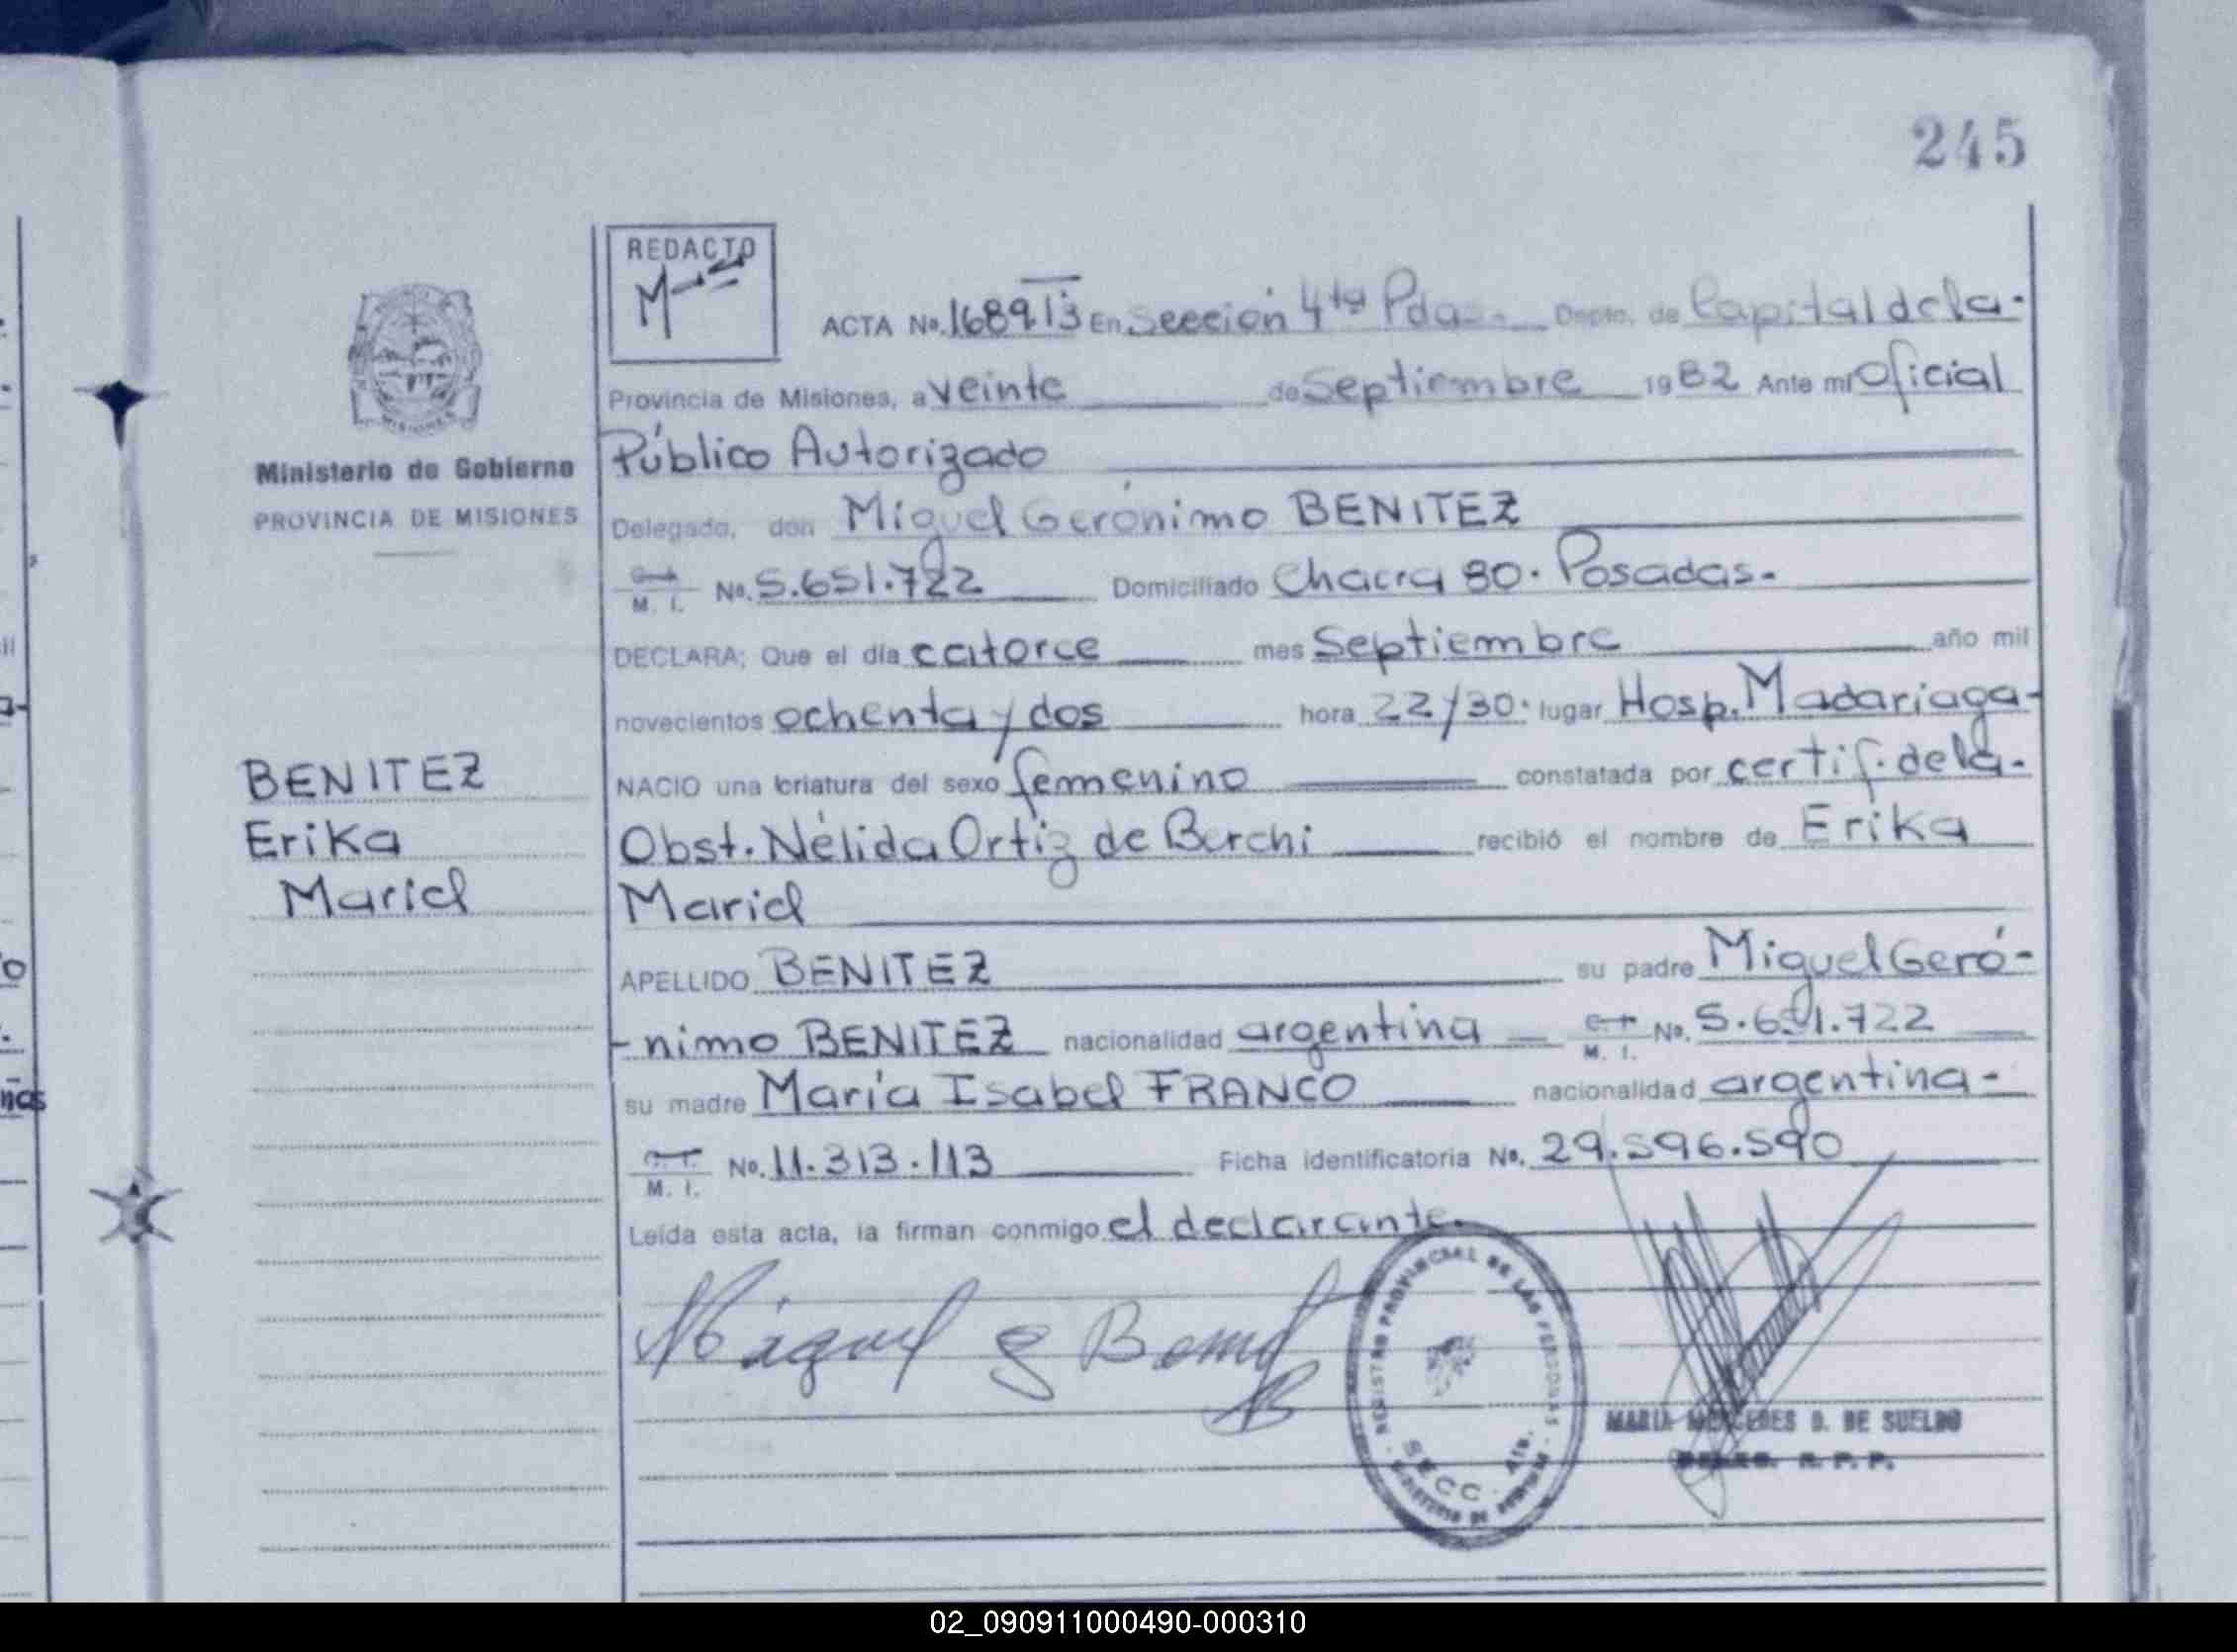 245
REDACTO
ACTA No. 1689 T3 En Sección 4ta Pdas. Depto. de Capital de la-
Provincia de Misiones, a veinte de Septiembre 1982 Ante mi Oficial
Público Autorizado
Ministerio de Gobierno
PROVINCIA DE MISIONES
MISIONES
Delegado, don Miguel Gerónimo BENITEZ
M. I. No. 5.651.722 Domiciliado Chacra 80. Posadas.
DECLARA; Que el día catorce mes Septiembre año mil
novecientos ochenta y dos hora 22/30. lugar Hosp. Madariaga-
BENITEZ
Erika
Mariel
NACIO una criatura del sexo femenino constatada por certif. de la-
Obst. Nélida Ortiz de Berchi recibió el nombre de Erika
Mariel
APELLIDO BENITEZ su padre Miguel Geró-
-nimo BENITEZ nacionalidad argentina M. I. No. 5.651.722
su madre María Isabel FRANCO nacionalidad argentina-
M. I. No. 11.313.113 Ficha identificatoria No. 29.596.590
Leída esta acta, la firman conmigo el declarante.
Miguel G Benit
REGISTRO PROVINCIAL DE LAS PERSONAS
SECC. 4ta.
MARIA MERCEDES D. DE SUELDO
R. P. P.
nas
02_090911000490-000310